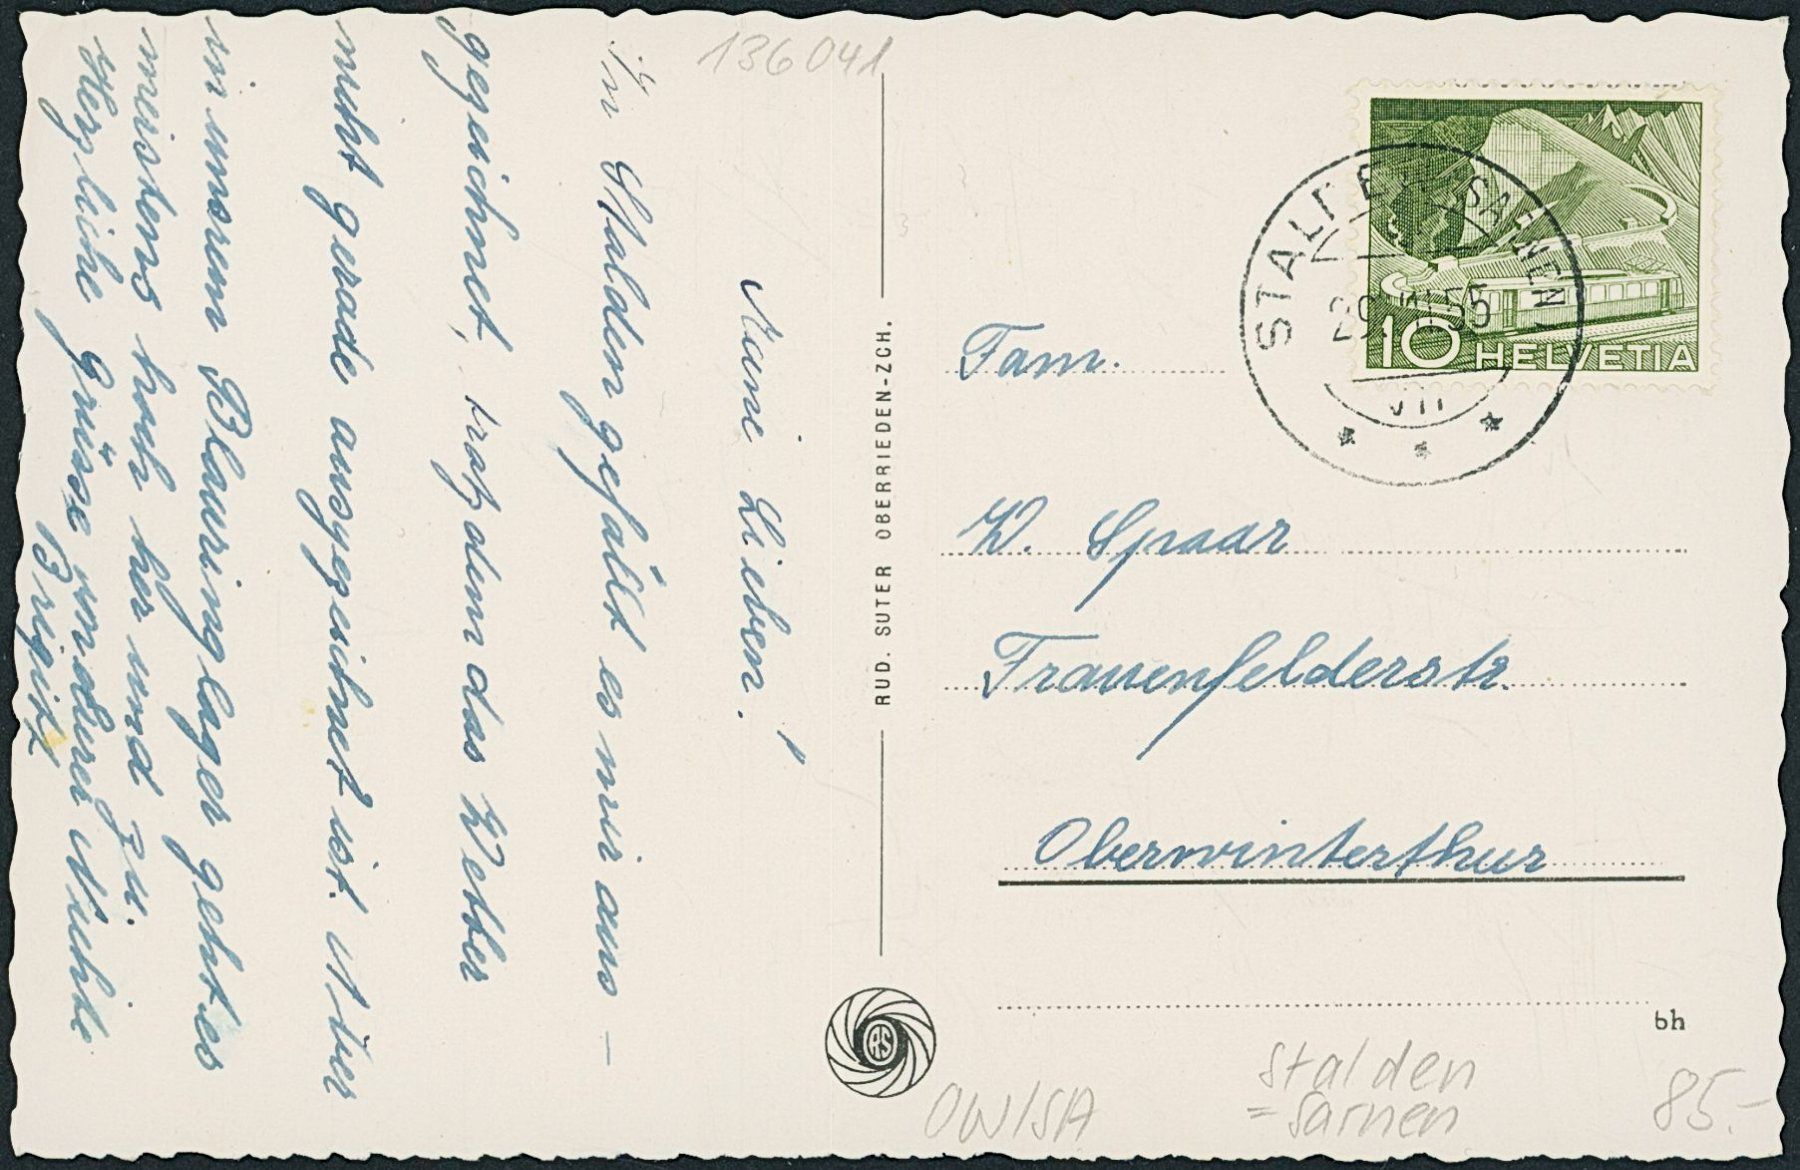 136041
Meine Lieben!
In Stalden gefällt es mir aus-
gezeichnet, trotzdem das Wetter
nicht gerade ausgezeichnet ist. Aber
in unserem Blauringlager geht es
meistens hoch her und zu.
Herzliche Grüsse von eurer Nichte
Brigitt
RUD. SUTER OBERRIEDEN-ZCH.
RS
STALDEN (SARNEN)
VII
10 HELVETIA
Fam.
W. Spaar
Frauenfelderstr.
Oberwinterthur
bh
OW/SA
Stalden
= Sarnen
85.-